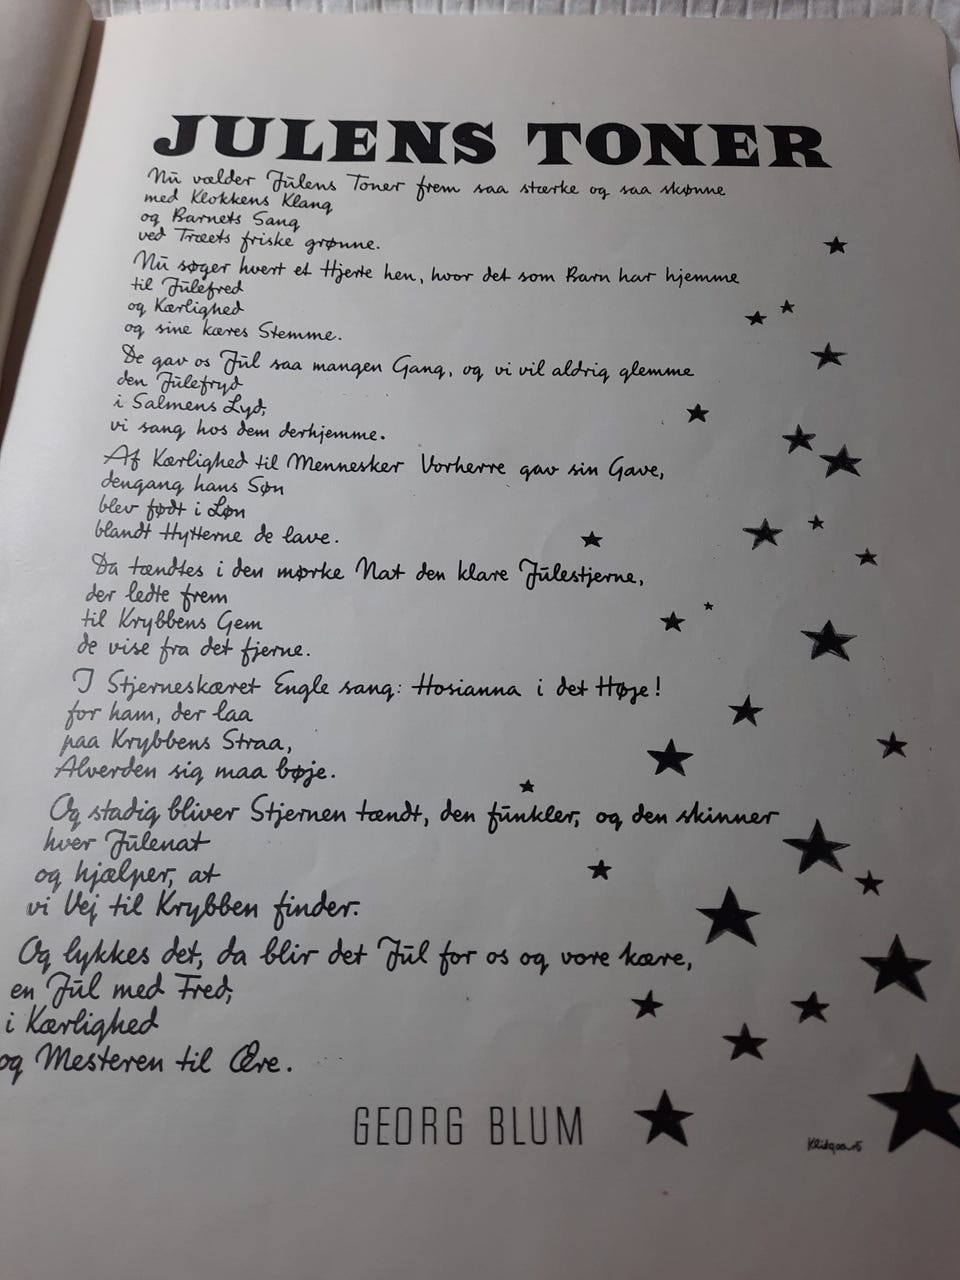 JULENS TONER
Nu vælder Julens Toner frem saa stærke og saa skønne
med Klokkens Klang
og Barnets Sang
ved Træets friske grønne.
Nu søger hvert et Hjerte hen, hvor det som Barn har hjemme
til Julefred
og Kærlighed
og sine kæres Stemme.
De gav os Jul saa mangen Gang, og vi vil aldrig glemme
den Julefryd
i Salmens Lyd,
vi sang hos dem derhjemme.
Af Kærlighed til Mennesker Vorherre gav sin Gave,
dengang hans Søn
blev født i Løn
blandt Hytterne de lave.
Da tændtes i den mørke Nat den klare Julestjerne,
der ledte frem
til Krybbens Gem
de vise fra det fjerne.
I Stjerneskæret Engle sang: Hosianna i det Høje!
for ham, der laa
paa Krybbens Straa,
Alverden sig maa bøje.
Og stadig bliver Stjernen tændt, den funkler, og den skinner
hver Julenat
og hjælper, at
vi Vej til Krybben finder.
Og lykkes det, da blir det Jul for os og vore kære,
en Jul med Fred,
i Kærlighed
og Mesteren til Ære.
GEORG BLUM